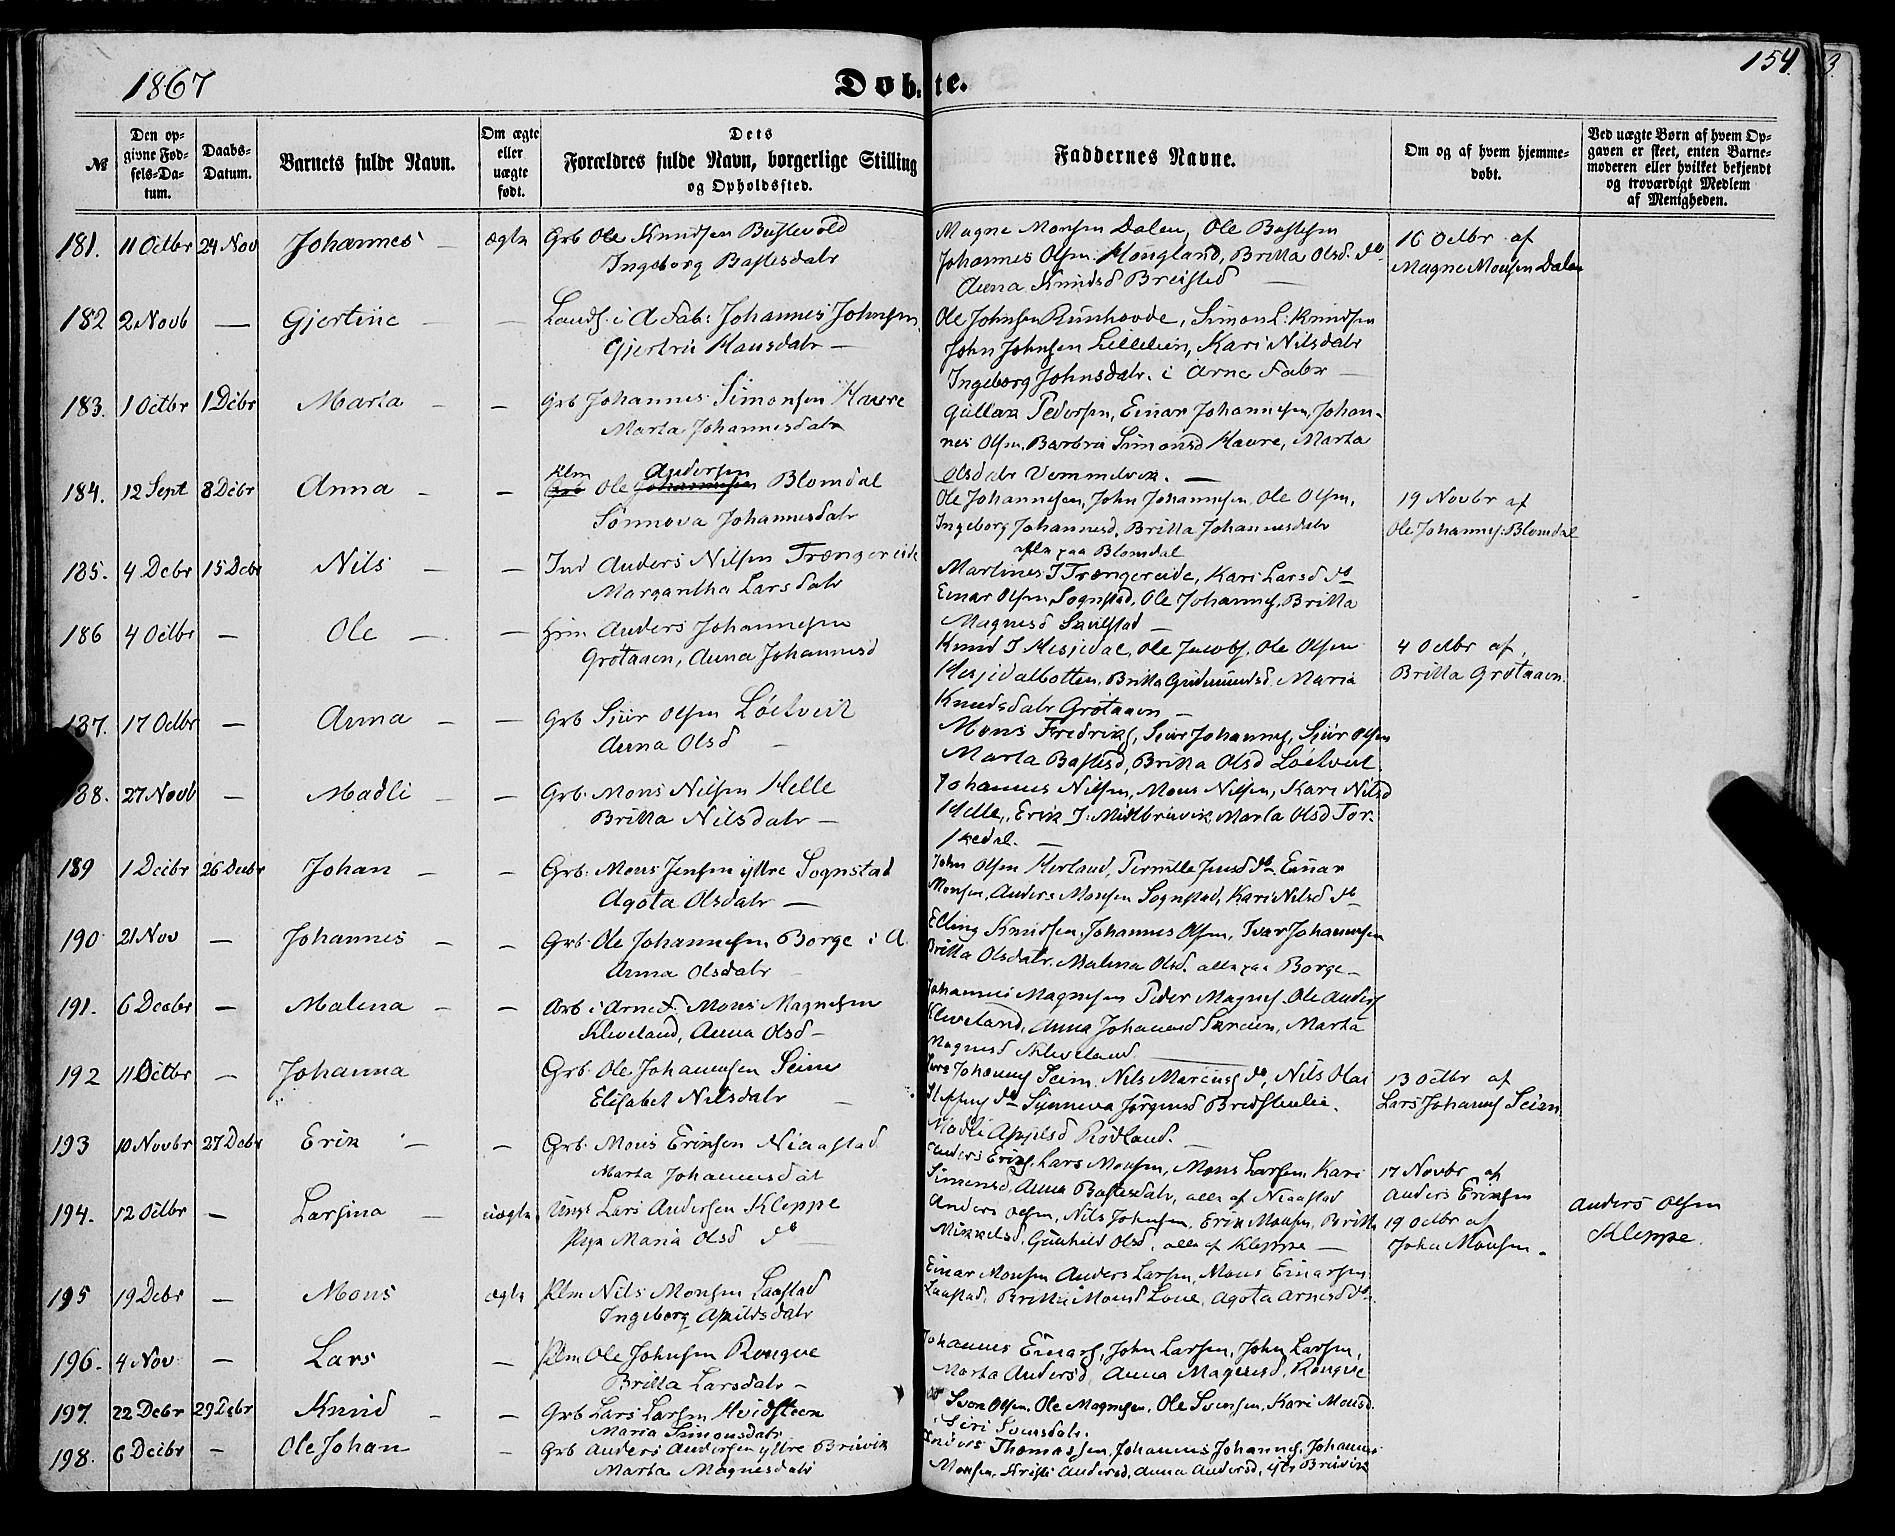 1867
Døbte.
154.
3.
№
Den opgivne Fødsels-Datum.
Daabs-Datum.
Barnets fulde Navn.
Om ægte eller uægte født.
Dets Forældres fulde Navn, borgerlige Stilling og Opholdssted.
Faddernes Navne.
Om og af hvem hjemmedøbt.
Ved uægte Børn af hvem Opgaven er skeet, enten Barnemoderen eller hvilket bekjendt og troværdigt Medlem af Menigheden.
181. 11 Octbr 24 Nov Johannes – ægte Grb Ole Knudsen
Ingeborg Bastesdatr
Magne Monsen Dalen, Ole Bastesen
Johannes Olsen Hougland, Britta Olsd. do
Anna Knudsd Breistad –
16 Octbr af
Magne Monsen Dalen
182 2 Novb — Gjertine – – Landh. i A Fab: Johannes Johnsen
Gjertru Hansdatr –
Ole Johnsen Runhovde, Simon L: Knudsen
John Johnsen Lillelien, Kari Nilsdatr
Ingeborg Johnsdatr. i Arne Fabr –
183. 1 Octbr 1 Decbr Marta – – Grb Johannes Simonsen Havre
Marta Johannesdatr
Gullak Pedersen, Einar Johannesen, Johan-
nes Olsen, Barbra Simonsd Havre, Marta
Olsdatr Vemmelvik. –
184. 12 Sept 8 Decbr Anna – – Plm Ole Andersen Blomdal
Sønnova Johannesdatr
Ole Johannesen, John Johannesen, Ole Olsen,
Ingeborg Johannesd, Britta Johannesdatr
alle paa Blomdal
19 Novbr af
Ole Johannes. Blomdal
185. 4 Decbr 15 Decbr Nils – – Ind Anders Nilsen Trængereide
Margaritha Larsdatr
Martines J Trængereide, Kari Larsd do
Einar Olsen Sognstad, Ole Johannes, Britta
Magnesd
186 4 Octbr – Ole – – Anders Johannesen
Grøtaaen, Anna Johannesd
Knud J Hesjedal, Ole Jacobs, Ole Olsen
Hesjedalbotten, Britta Gudmundsd. Maria
Knudsdatr Grøtaaen –
4 Octbr af
Britta Grøtaaen.
187. 17 Octbr – Anna – – Grb Sjur Olsen
Anna Olsd –
Mons Fredriks, Sjur Johannes, Sjur Olsen
Marta Bastesd, Britta Olsd
188. 27 Novb – Madli – – Grb. Mons Nilsen Helle
Britta Nilsdatr –
Johannes Nilsen, Mons Nilsen, Kari Nilsd
Helle, Erik J. Midtbruvik Marta Olsd Tor-
skedal. –
189 1 Decbr 26 Decbr Johan – – Grb: Mons Jensen yttre Sognstad
Agota Olsdatr –
John Olsen Herland, Pernille Jensd do Einar
Monsen, Anders Monsen Sognstad, Kari Nilsd do
190 21 Nov – Johannes – – Grb. Ole Johannesen Borge i A.
Anna Olsdatr –
Elling Knudsen, Johannes Olsen, Ivar Johannesen
Britta Olsdatr. Malena Olsd. alle paa Borge –
191. 6 Decbr – Malena – – Arb i Arne F. Mons Magnesen
Kleveland, Anna Olsd –
Johannes Magnesen Peder Magnes. Ole Anders
Kleveland, Anna Johannesd Marta
Magnesd Kleveland
192 11 Octbr – Johanna Grb. Ole Johannesen Seim
Elisabet Nilsdatr –
Lars Johannes Seim, Nils Marcus do, Nils Olai
do Synneva Jørgensd
Madli Aspelsd Rødland. –
13 Octbr af
Lars Johannes Seim
193 10 Novbr 27 Decbr Erik – – Grb. Mons Eriksen Niaastad
Marta Johannesdat
Anders Eriks, Lars Monsen, Mons Larsen Kari
Simonsd, Anna Bastesdatr, alle af Niaastad
17 Novbr af
Anders Eriksen
194. 12 Octbr – Larsina – uægte Ungk Lars Andersen Kleppe
Pige Maria Olsd do –
Anders Olsen, Nils Johnsen, Erik Monsen, Britta
Mikkelsd, Gunhild Olsd. alle af Kleppe –
19 Octbr af
John Monsen.
Anders Olsen
Kleppe.
195 19 Decbr – Mons ægte Plm Nils Monsen Laastad
Ingeborg
Einar Monsen Anders Larsen, Mons Einarsen
Laastad, Britta Monsd Lone, Agota Arnesd do.
196. 4 Nov – Lars – Plm Ole Johnsen Rongve
Britta Larsdatr –
Johannes Einars, John Larsen, John Larsen,
Marta Andersd, Anna Magnesd, Rongve
197. 22 Decbr 29 Decbr Knud – – Grb Lars Larsen Hvidsteen
Maria Simonsdatr
Sven Olsen, Ole Magnesen, Ole Svensen, Kari Monsd.
Siri Svensdatr.
198. 6 Decbr – Ole Johan – Grb Anders Andersen yttre Bruvik
Marta Magnesdatr
Anders Thomassen, Johannes Johannes, Johannes
Monsen, Kristi Andersd, Anna Andersd, ytr Bruvik